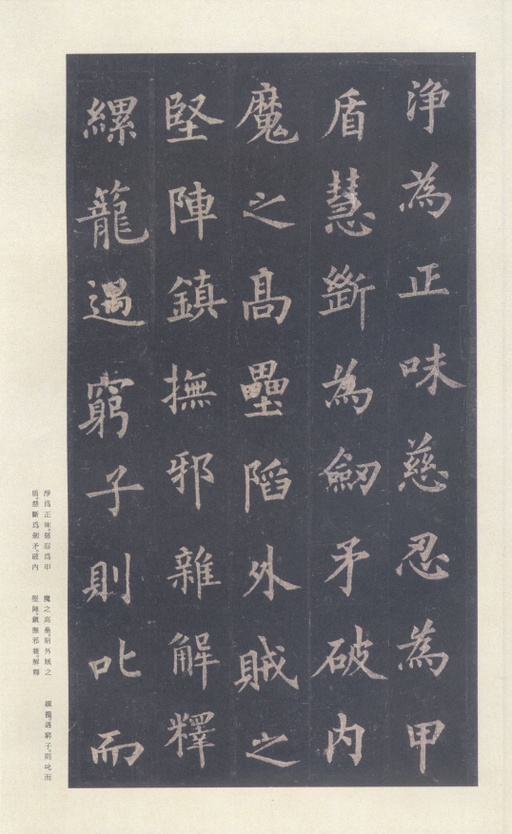 淨為正味慈忍為甲
盾慧斷為劒矛破内
魔之髙壘陷外賊之
堅陣鎮撫邪雜解釋
縲籠遇窮子則叱而
淨爲正味。慈忍爲甲
盾。慧斷爲劍矛。破内
魔之高壘。陷外賊之
堅陣。鎮撫邪雜。解釋
縲籠。遇窮子。則叱而